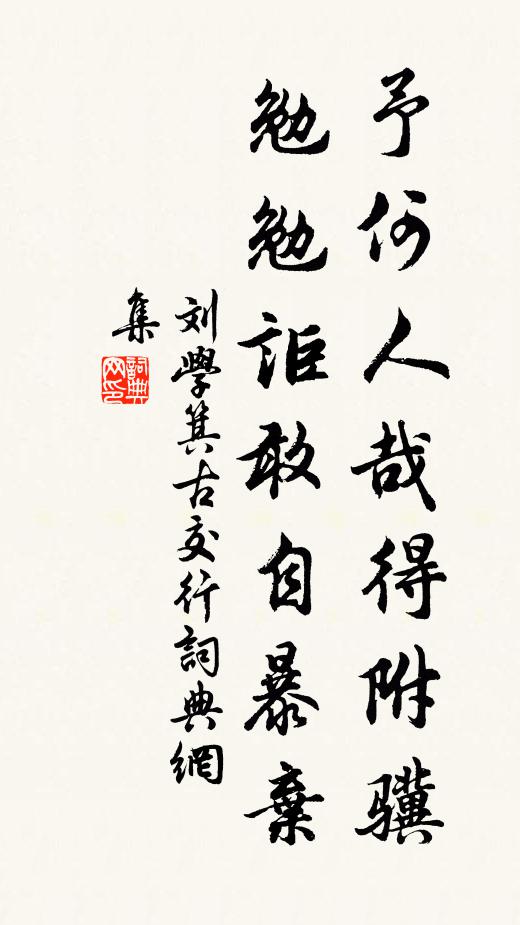 予何人哉得附骥
勉勉詎敢自暴棄
刘學箕古交行詞典網
集
詞典網印